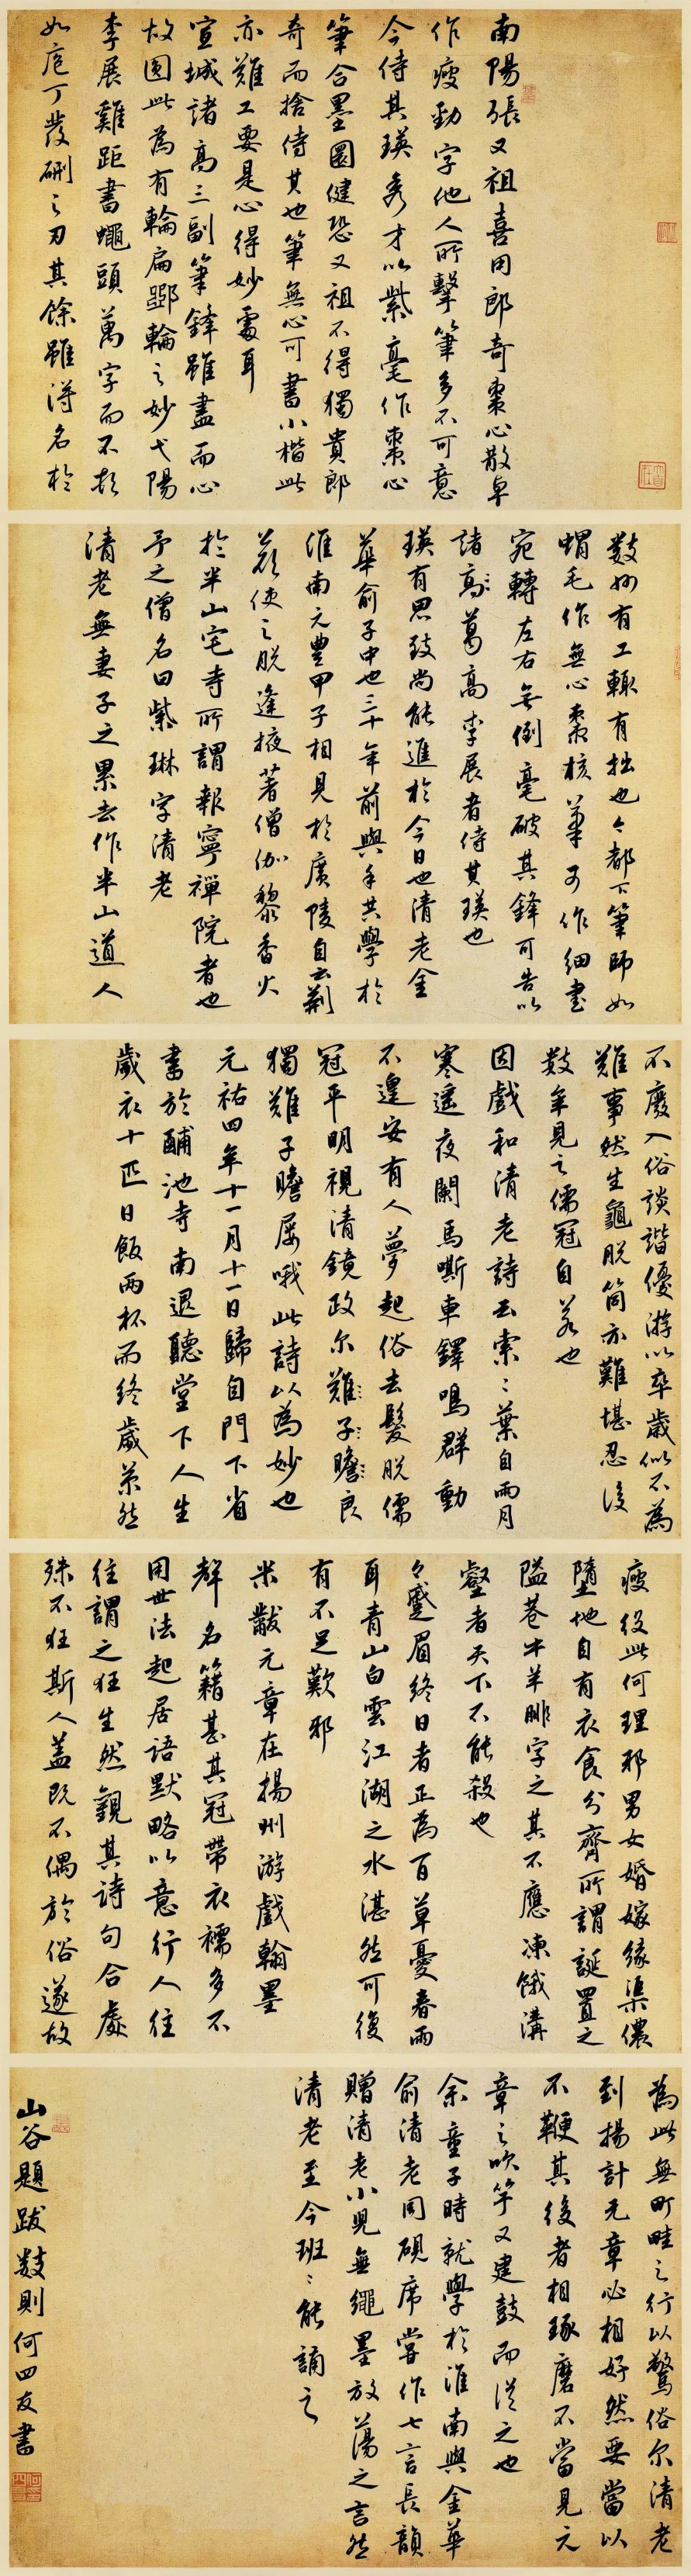 南陽張乂祖喜用郎奇棗心散卓
作瘦勁字他人所擊筆多不可意
今侍其瑛秀才以紫毫作棗心
筆含墨圓健恐乂祖不得獨貴郎
奇而捨侍其也筆無心可書小楷此
亦難工要是心得妙處耳
宣城諸高三副筆鋒雖盡而心
故圓此為有輪扁斲輪之妙弋陽
李展雞距書蠅頭萬字而不頓
如庖丁發硎之刃其餘雖得名於
數州有工輒有拙也今都下筆師如
蝟毛作無心棗核筆可作細書
宛轉左右無倒毫破其鋒可告以
諸高葛高李展者侍其瑛也
瑛有思致尚能進於今日也清老金
華俞子中也三十年前與予共學於
淮南元豐甲子相見於廣陵自云荊
公欲使之脫逢掖著僧伽黎香火
於半山宅寺所謂報寧禪院者也
予之僧名曰紫琳字清老
清老無妻子之累去作半山道人
不廢入俗談諧優游以卒歲似不為
難事然生龜脫筒亦難堪忍後
數年見之儒冠自若也
因戲和清老詩云索〻葉自雨月
寒遙夜闌馬嘶車鐸鳴群動
不遑安有人夢超俗去髮脫儒
冠平明視清鏡政尔難子瞻良
獨難子瞻屢哦此詩以為妙也
元祐四年十一月十一日歸自門下省
書於酺池寺南退聽堂下人生
歲衣十匹日飯兩杯而終歲苶然
瘦役此何理邪男女婚嫁緣渠儂
墮地自有衣食分齊所謂誕置之
隘巷牛羊腓字之其不應凍餓溝
壑者天下不能殺也
今蹙眉終日者正為百草憂春雨
耳青山白雲江湖之水湛然可復
有不足歎邪
米黻元章在揚州游戲翰墨
聲名籍甚其冠帶衣襦多不
用世法起居語默略以意行人往
往謂之狂生然觀其詩句合處
殊不狂斯人蓋既不偶於俗遂故
為此無町畦之行以驚俗尔清老
到揚計元章必相好然要當以
不鞭其後者相琢磨不當見元
章之吹竽又建鼓而從之也
余童子時就學於淮南與金華
俞清老同硯席嘗作七言長韻
贈清老小兒無繩墨放蕩之言然
清老至今班〻能誦之
山谷題跋數則何四友書